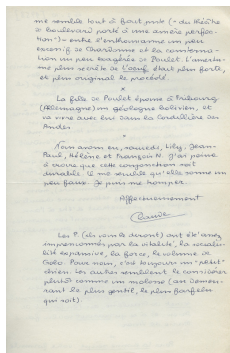 me semble tout à fait juste (- du théâtre
de boulevard porté à une amère perfec-
tion") - entre l'enthousiasme un peu
excessif de Chardonne et la consterna-
tion un peu exagérée de Poulet. L'amertu-
me plus secrète de l'oeuf était plus forte,
et plus original le procédé.
*
La fille de Poulet épouse à Fribourg
(Allemagne) un géologue bolivien, et
va vivre avec lui dans la Cordillère des
Andes
*
Jean-
Paul, Hélène et François N. J'ai peine
à croire que cette conjonction soit
durable. Il me semble qu'elle sonne un
peu faux. Je puis me tromper.
Affectueusement
Claude
Les P. (ils vous le diront) ont été assez
impressionnés par la vitalité, la sociabi-
lité expansive, la force, le volume de
Golo. Pour nous, c'est toujours un "petit"
chien. Les autres semblent le considérer
plutôt comme un molosse (au demeu-
rant le plus gentil, le plus farfelu
qui soit)